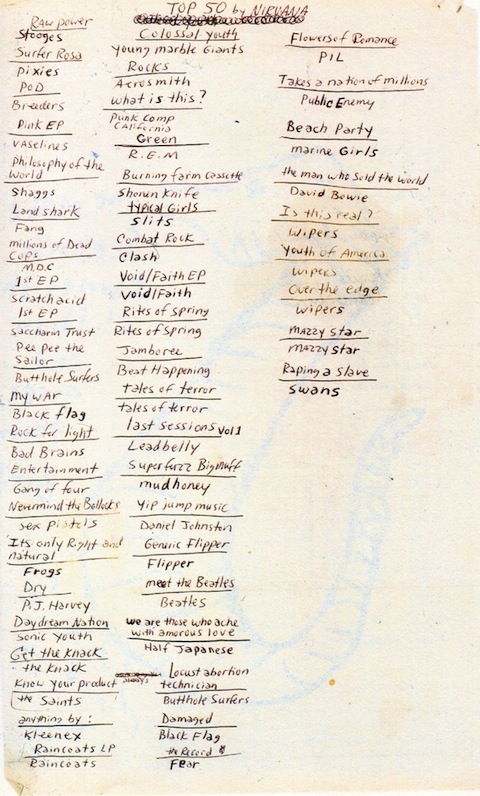 TOP 50 by NIRVANA
Raw power
Stooges
Surfer Rosa
Pixies
POD
Breeders
Pink EP
Vaselines
Philosophy of the
World
Shaggs
Land shark
Fang
millions of Dead
Cops
M.D.C
1st EP
Scratch acid
1st EP
Saccharin Trust
Pee pee the
Sailor
Butthole Surfers
My WAr
Black flag
Rock for light
Bad Brains
Entertainment
Gang of four
Nevermind the Bollocks
sex pistols
Its only Right and
natural
Frogs
Dry
P.J. Harvey
Daydream Nation
Sonic Youth
Get the Knack
the Knack
Know your product
the Saints
anything by:
Kleenex
Raincoats LP
Raincoats
Colossal Youth
Young marble Giants
Rocks
Aerosmith
What is this?
Punk Comp
California
Green
R.E.M
Burning farm Cassette
Shonen Knife
typical Girls
Slits
Combat Rock
Clash
Void/Faith EP
Void/Faith
Rites of Spring
Rites of Spring
Jamboree
Beat Happening
tales of terror
tales of terror
last sessions vol 1
Leadbelly
Superfuzz Bigmuff
mudhoney
Yip jump music
Daniel Johnston
Generic Flipper
Flipper
meet the Beatles
Beatles
we are those who ache
with amorous love
Half Japanese
Locust abortion
technician
Butthole Surfers
Damaged
Black Flag
the Record
Fear
Flowers of Romance
PIL
Takes a nation of millions
Public Enemy
Beach Party
marine Girls
the man who Sold the World
David Bowie
Is this real?
Wipers
Youth of America
Wipers
Over the edge
Wipers
MAZZY Star
MAZZY Star
Raping a Slave
Swans